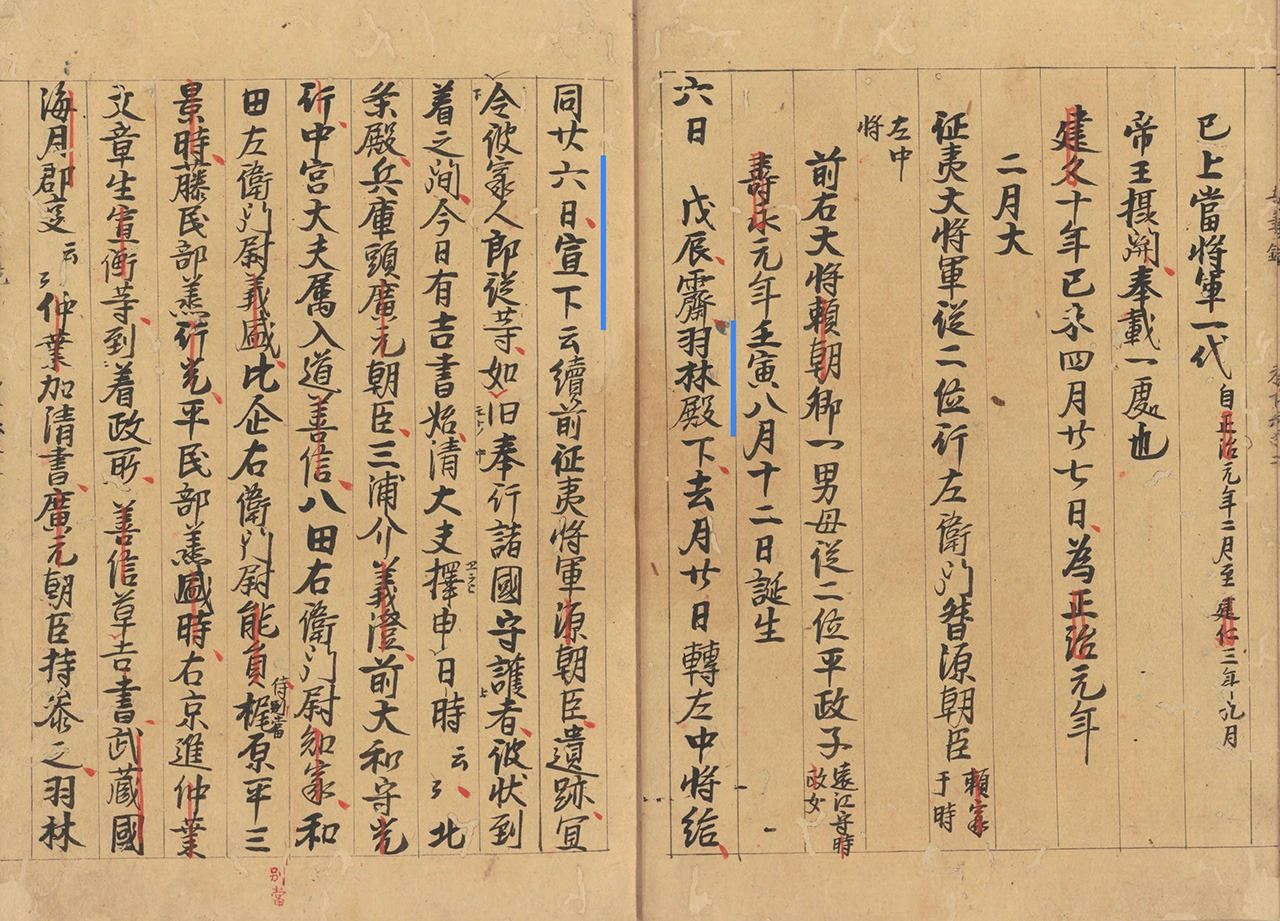 已上當将軍一代 自正治元年二月至建仁三年九月
帝王摂関奉載一處也
建久十年己未四月廿七日為正治元年
二月大
征夷大将軍従二位行左衛門督源朝臣 頼家于時
左中将
前右大将頼朝卿一男母従二位平政子 遠江守時政女
壽永元年壬寅八月十二日誕生
六日 戊辰霽羽林殿下去月廿日轉左中将給
同廿六日宣下云續前征夷将軍源朝臣遺跡宜
令彼家人郎従等如旧奉行諸國守護者彼状到
着之間今日有吉書始清大夫擇申日時云々北
条殿兵庫頭廣元朝臣三浦介義澄前大和守光
行中宮大夫属入道善信八田右衛門尉知家和
田左衛門尉義盛比企右衛門尉能員梶原平三
侍別當
別當
景時藤民部丞行光平民部丞盛時右京進仲業
文章生宣衡等到着政所善信草吉書武蔵國
海月郡叓云々仲業加清書廣元朝臣持参之羽林